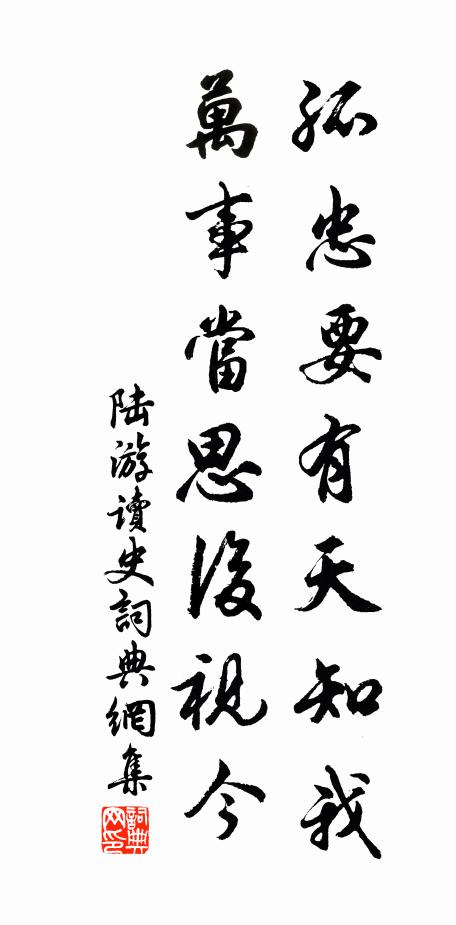 孤忠要有天知我
萬事當思後視今
陆游讀史詞典網集
詞典網印